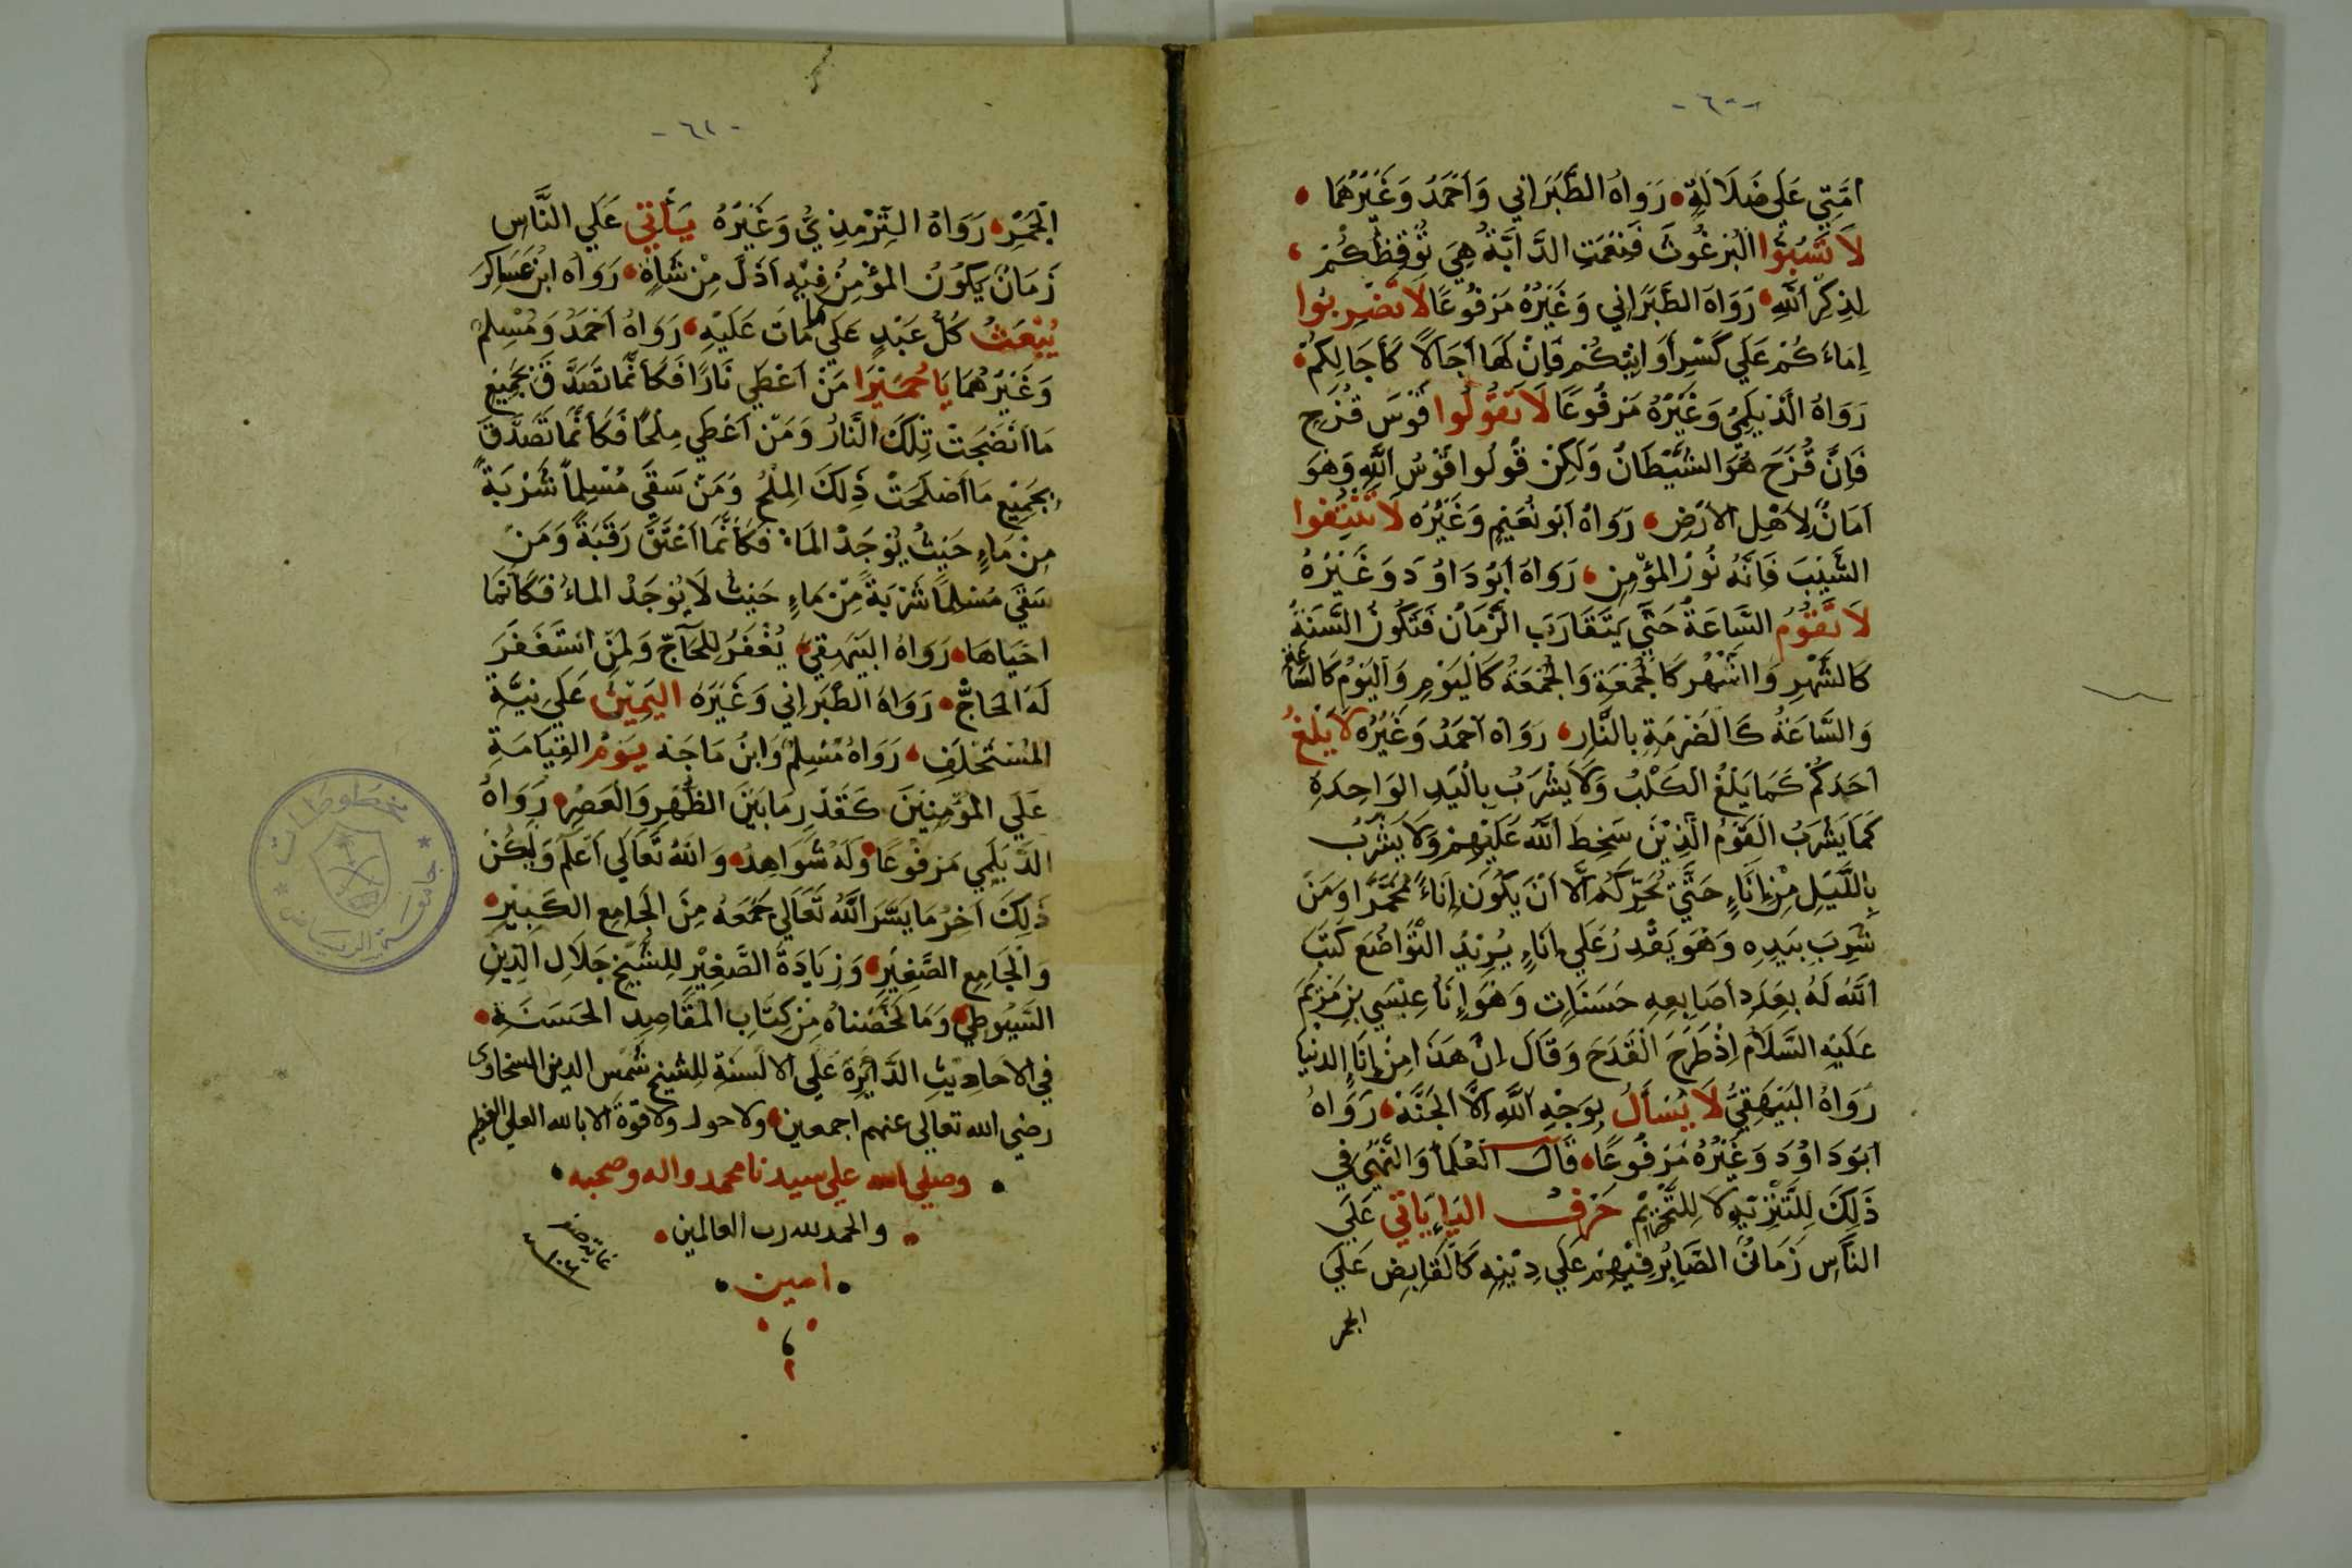 -٦٠-
أمَّتِي عَلَى ضَلَالَةٍ رَوَاهُ الطَّبَرَاني وَاَحْمَدُ وَغَيْرُهُمَا
لَا تَسُبُّوا الْبُرْغُوثَ فَنِعْمَتِ الدَّابَّةُ هِيَ تُوقِظُكُمْ
لِذِكْرِ اللهِ رَوَاهُ الطَّبَرَاني وَغَيْرُهُ مَرْفُوعًا لَا تَضْرِبُوا
اِمَاءَكُمْ عَلَي كَسْرِ أَوَانِيْكُمْ فَاِنَّ لَهَا اٰجَالًا كَأٰجَالِكُمْ
رَوَاهُ الدَّيْلَمِيُ وَغَيْرُهُ مَرْفُوعًا لَا تَقُولُوا قَوْسَ قُزَحٍ
فَاِنَّ قُزَحَ هُوَ الشَّيْطَانُ وَلَكِنْ قُولُوا قَوْسُ اللهِ وَهُوَ
اَمَانٌ لِاَهْلِ الْاَرْضِ رَوَاهُ اَبُو نُعَيْمٍ وَغَيْرُه لَا تَنْتِفُوا
الشَّيْبَ فَاِنَّهُ نُورُ المؤْمِنِ رَوَاهُ اَبُودَاوُدَ وَغَيْرُهُ
لَا تَقُوْمُ السَّاعَةُ حَتَّي يَتَقَارَبَ الزَّمَانُ فَتَكُونُ السَّنَةُ
كَالشَّهْرِ وَالشَّهْرُ كَالْجُمْعَةِ وَالْجُمْعَةُ كَالْيَوْمِ وَالْيَوْمُ كَالسَّاعَةِ
وَالسَّاعَةُ كَالضَّرْمَةِ بِالنَّارِ رَوَاهُ اَحْمَدُ وَغَيْرُهُ لَا يَلْغُ
اَحَدُكُمْ كَمَا يَلْغُ الْكَلْبُ وَلَا يَشْرَبُ بِالْيَدِ الوَاحِدَةِ
كَمَا يَشْرَبُ الْقَوْمُ الَّذِيْنَ سَخِطَ اللهُ عَلَيْهِمْ وَلَا يَشْرَبُ
بِاللَّيْلِ مِنْ إِنَاءٍ حَتَّي يُحَرِّكَهُ اِلَّا اَنْ يَكُونَ إِنَاءً مُخَمَّرًا وَمَنْ
شَرِبَ بِيَدِهِ وَهُوَ يَقْدِرُ عَلَي اِنَاءٍ يُرِيْدُ التَّوَاضُعَ كَتَبَ
اللهُ لَهُ بِعَدَدِ اَصَابِعِهِ حَسَنَاتٍ وَهُوَ إِنَاءُ عِيْسَي بْنِ مَرْيَمَ
عَلَيْهِ السَّلَامُ اِذْ طَرَحَ الْقَدَحَ وَقَالَ اِنَّ هَذَا مِنْ إِنَاءِ الدنْيَا
رَوَاهُ الْبَيْهَقِيُّ لَا يُسْأَلُ بِوَجْهِ اللهِ اِلَّا الْجَنَّةُ رَوَاهُ
اَبُو دَاوُدَ وَغَيْرُهُ مَرْفُوعًا قَالَ الْعُلَمَاءُ وَالنَّهْيُ فِي
ذَلِكَ لِلتَّنْزِيْهِ لَا لِلتَّحْرِيْمِ حَرْفُ اليَاءِ يَاْتِي عَلَي
النَّاسِ زَمَانُ الصَّابِرُ فِيْهِمْ عَلَي دِيْنِهِ كَالْقَابِضِ عَلَي
الجمر
-٦١-
الْجَمْرِ رَوَاهُ التِّرْمِذِيُّ وَغَيْرُهُ يَأْتِي عَلَي النَّاسِ
زَمَانٌ يَكُوْنُ المؤْمِنُ فِيْهِ اَذَلَّ مِنْ شَاةٍ رَوَاهُ ابْنُ عَسَاكِرَ
يُبْعَثُ كُلُّ عَبْدٍ عَلَي مَا مَاتَ عَلَيْهِ رَوَاهُ اَحْمَدُ وَمُسْلِمٌ
وَغَيْرُهُمَا يَا حُمَيْرَا مَنْ اَعْطَي نَارًا فَكَأَنَّمَا تَصَدَّقَ بِجَمِيْعِ
مَا اَنْضَجَتْ تِلْكَ النَّارُ وَمَنْ اَعْطَي مِلْحًا فَكَأَنَّمَا تَصَدَّقَ
بِجَمِيْعِ مَا اَصْلَحَتْ ذٰلِكَ المِلْحُ وَمَنْ سَقَي مُسْلِمًا شَرْبَةً
مِنْ مَاءٍ حَيْثُ يُوْجَدُ المَاءُ فَكَأَنَّمَا اَعْتَقَ رَقَبَةً وَمَنْ
سَقَي مُسْلِمًا شَرْبَةً مِنْ مَاءٍ حَيْثُ لَا يُوْجَدُ الماءُ فَكَأَنَّمَا
احْيَاهَا رَوَاهُ البَيْهَقِيْ يُغْفَرُ لِلْحَآجِّ وَلِمَنِ اسْتَغْفَرَ
لَهُ الحَاجُّ رَوَاهُ الطَّبَرَاني وَغَيْرُهُ اليَمِيْنُ عَلَي نِيَّةِ
المُسْتَحْلِفِ رَوَاهُ مُسْلِمٌ وَابْنُ مَاجَهْ يَوْمُ القِيَامَةِ
عَلَي المؤْمِنِيْنَ كَقَدْرِ مَا بَيْنَ الظُّهْرِ وَالْعَصْرِ رَوَاهُ
الدَّيْلَمِي مَرْفُوعًا وَلَهُ شَوَاهِدُ وَاللهُ تَعَالَي اَعْلَمُ وَلْيَكُنْ
ذٰلِكَ اٰخِرُ مَا يَسَّرَ اللهُ تَعَالَي جَمْعَهُ مِنَ الْجَامِعِ الْكَبِيْرِ
وَالْجَامِعِ الصَّغِيْرِ وَزِيَادَةِ الصَّغِيْرِ لِلشَّيْخِ جَلَالِ الدِّيْنِ
السُّيُوطِي وَمَا لَخَّصْنَاهُ مِنْ كِتَابِ الْمَقَاصِدِ الحَسَنَةِ
فِي الاَحَادِيْثِ الدَّائِرَةِ عَلَي الاَلْسِنَةِ لِلشَّيْخِ شَمْسِ الدين السخاوى
رضي الله تعالي عنهم اجمعين ولا حول ولا قوة الا بالله العلي العظيم
وصلي الله علي سيدنا محمد واله وصحبه
والحمد لله رب العالمين
امين
مخطوطات
جامعة الرياض